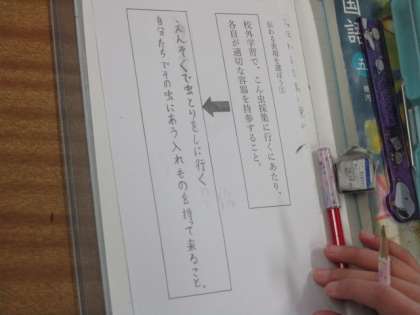 国語 五
伝わる表現を選ぼう①
校外学習で、こん虫採集に行くにあたり、
各自が適切な容器を持参すること。
えんそくで虫とりをしに行く。
自分たちでその虫にあう入れものを持って来ること。